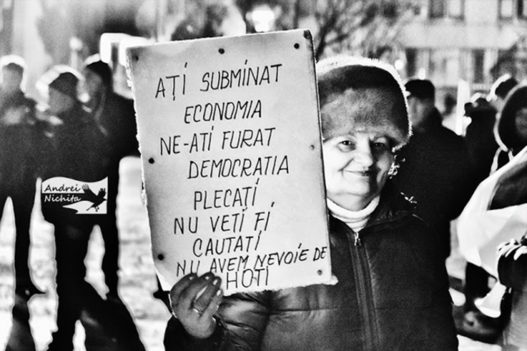 AȚI SUBMINAT
ECONOMIA
NE-ATI FURAT
DEMOCRATIA
PLECAȚI
NU VEȚI FI
CAUTAȚI
NU AVEM NEVOIE DE
HOȚI
Andrei
Nichita